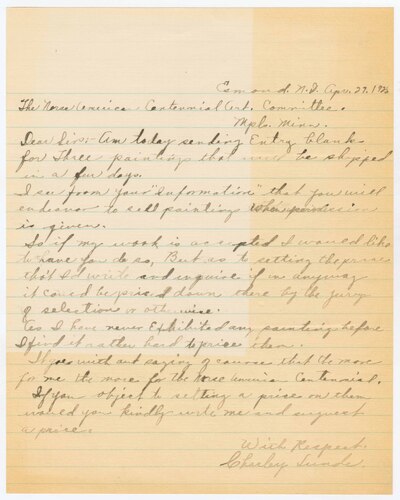 Esmond. N.D. Apr. 29. 1925
The Norse America Centennial Art. Committee.
Mpls. Minn.
Dear Sirs:- Am today sending Entry blanks
for three paintings that will be shipped
in a few days.
I see from your "Information" that you will
endeavor to sell paintings when permission
is given.
So if my work is accepted I would like
to have you do so, But as to setting the prices
that I'd write and inquire if in anyway
it could be priced down there by the jury
of selection or otherwise.
As I have never Exhibited any painting before
I find it rather hard to price them.
It goes with out saying of course that the more
for me the more for the Norse America Centennial.
If you object to setting a price on them
would you kindly write me and suggest
a price.
With Respect.
Charley